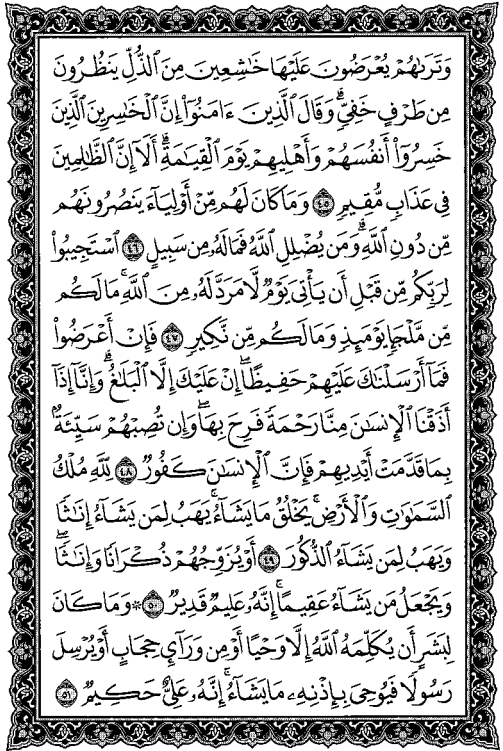 وَتَرَىٰهُمْ يُعْرَضُونَ عَلَيْهَا خَٰشِعِينَ مِنَ ٱلذُّلِّ يَنظُرُونَ
مِن طَرْفٍ خَفِىٍّ ۗ وَقَالَ ٱلَّذِينَ ءَامَنُوٓا۟ إِنَّ ٱلْخَٰسِرِينَ ٱلَّذِينَ
خَسِرُوٓا۟ أَنفُسَهُمْ وَأَهْلِيهِمْ يَوْمَ ٱلْقِيَٰمَةِ ۗ أَلَآ إِنَّ ٱلظَّٰلِمِينَ
فِى عَذَابٍ مُّقِيمٍ ٤٥ وَمَا كَانَ لَهُم مِّنْ أَوْلِيَآءَ يَنصُرُونَهُم
مِّن دُونِ ٱللَّهِ ۗ وَمَن يُضْلِلِ ٱللَّهُ فَمَا لَهُۥ مِن سَبِيلٍ ٤٦ ٱسْتَجِيبُوا۟
لِرَبِّكُم مِّن قَبْلِ أَن يَأْتِىَ يَوْمٌ لَّا مَرَدَّ لَهُۥ مِنَ ٱللَّهِ ۚ مَا لَكُم
مِّن مَّلْجَإٍ يَوْمَئِذٍ وَمَا لَكُم مِّن نَّكِيرٍ ٤٧ فَإِنْ أَعْرَضُوا۟
فَمَآ أَرْسَلْنَٰكَ عَلَيْهِمْ حَفِيظًا ۖ إِنْ عَلَيْكَ إِلَّا ٱلْبَلَٰغُ ۗ وَإِنَّآ إِذَآ
أَذَقْنَا ٱلْإِنسَٰنَ مِنَّا رَحْمَةً فَرِحَ بِهَا ۖ وَإِن تُصِبْهُمْ سَيِّئَةٌۢ
بِمَا قَدَّمَتْ أَيْدِيهِمْ فَإِنَّ ٱلْإِنسَٰنَ كَفُورٌ ٤٨ لِّلَّهِ مُلْكُ
ٱلسَّمَٰوَٰتِ وَٱلْأَرْضِ ۚ يَخْلُقُ مَا يَشَآءُ ۚ يَهَبُ لِمَن يَشَآءُ إِنَٰثًا
وَيَهَبُ لِمَن يَشَآءُ ٱلذُّكُورَ ٤٩ أَوْ يُزَوِّجُهُمْ ذُكْرَانًا وَإِنَٰثًا ۖ
وَيَجْعَلُ مَن يَشَآءُ عَقِيمًا ۚ إِنَّهُۥ عَلِيمٌ قَدِيرٌ ٥٠ * وَمَا كَانَ
لِبَشَرٍ أَن يُكَلِّمَهُ ٱللَّهُ إِلَّا وَحْيًا أَوْ مِن وَرَآئِ حِجَابٍ أَوْ يُرْسِلَ
رَسُولًا فَيُوحِىَ بِإِذْنِهِۦ مَا يَشَآءُ ۚ إِنَّهُۥ عَلِىٌّ حَكِيمٌ ٥١